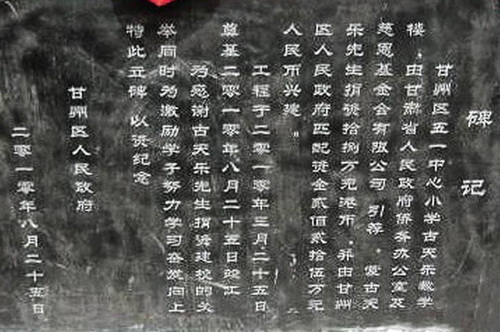 碑记
甘州区五一中心小学古天乐教学
楼,由甘肃省人民政府侨务办公室及
慈恩基金会有限公司 引荐 蒙古天
乐先生捐资拾捌万元港币,并由甘州
区人民政府匹配资金贰佰贰拾伍万元
人民币兴建。
工程于二零一零年三月二十五日
奠基二零一零年八月二十五日竣工
为感谢古天乐先生捐资建校的义
举同时为激励学子努力学习奋发向上
特此立碑,以资纪念
甘州区人民政府
二零一零年八月二十五日